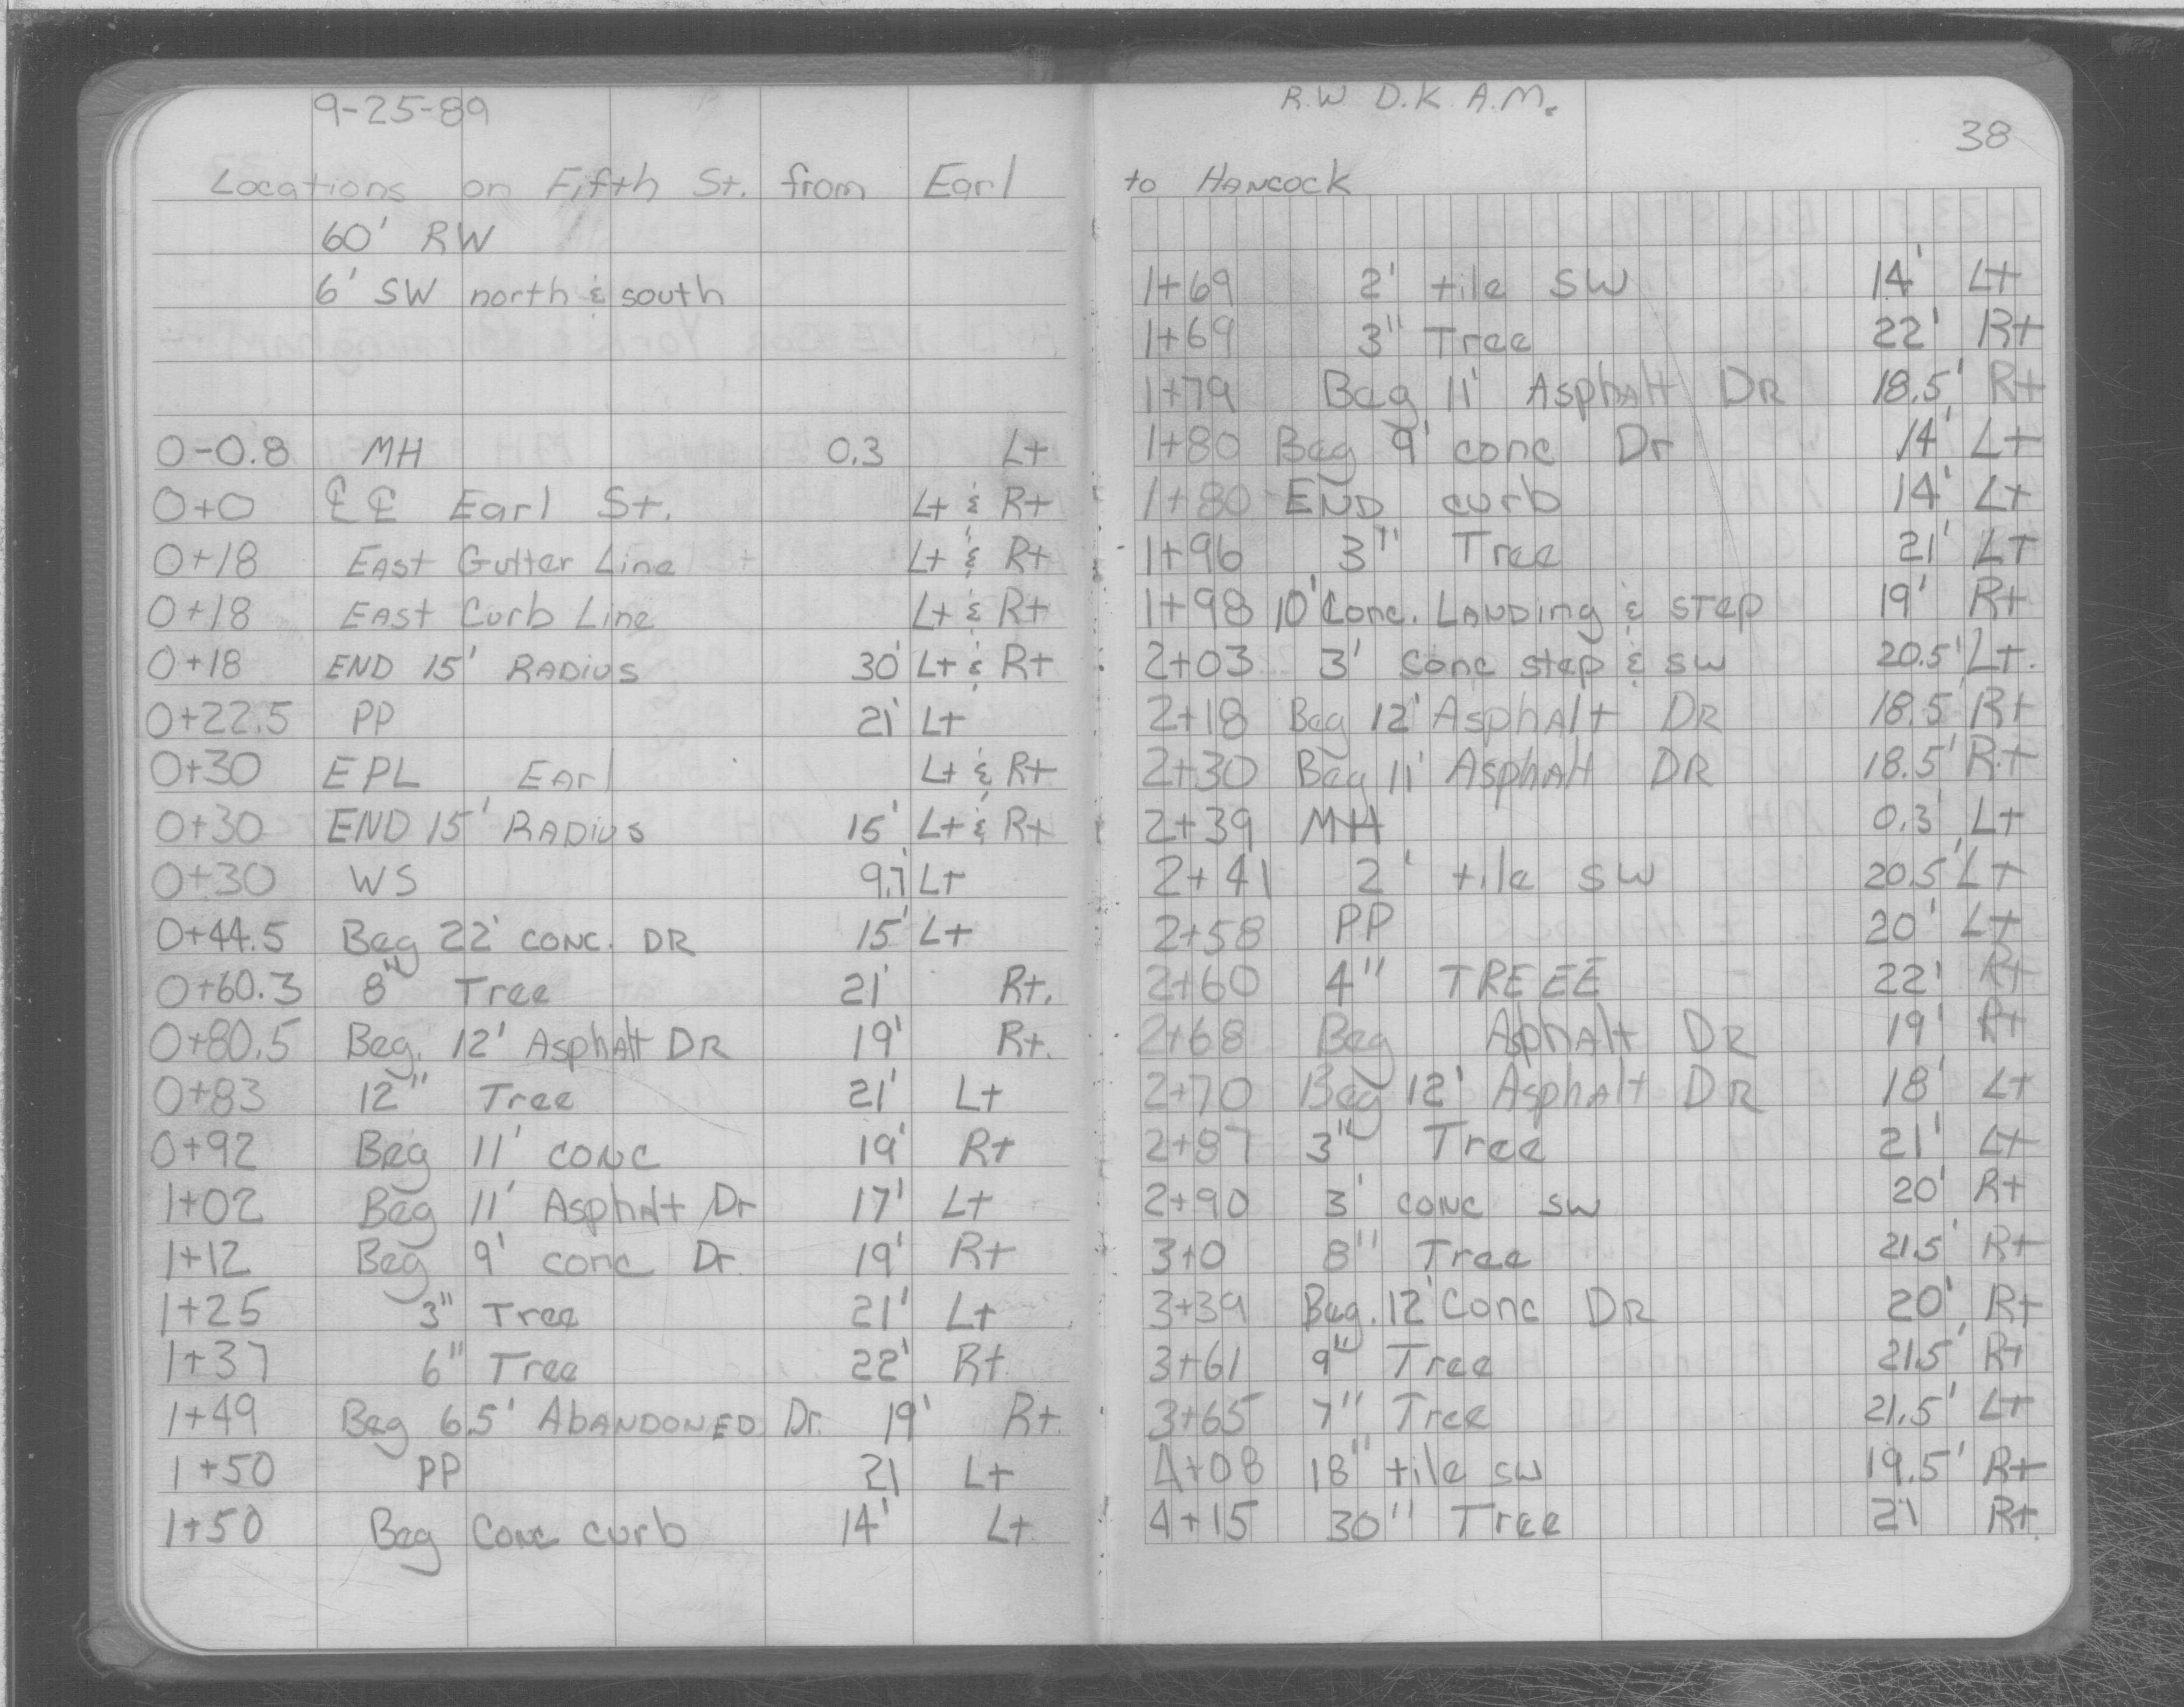 9-25-89
Locations on Fifth St. from Earl
60' RW
6' SW north & south
0-0.8 MH 0.3 Lt
0+0 ℄ ℄ Earl St. Lt & Rt
0+18 EAST Gutter Line Lt & Rt
0+18 EAST Curb Line Lt & Rt
0+18 END 15' RADIUS 30' Lt & Rt
0+22.5 PP 21' Lt
0+30 EPL Earl Lt & Rt
0+30 END 15' RADIUS 15' Lt & Rt
0+30 WS 9.7' Lt
0+44.5 Beg 22' CONC. DR 15' Lt
0+60.3 8" Tree 21' Rt.
0+80.5 Beg. 12' Asphalt DR 19' Rt.
0+83 12" Tree 21' Lt
0+92 Beg 11' CONC 19' Rt
1+02 Beg 11' Asphalt Dr 17' Lt
1+12 Beg 9' conc Dr. 19' Rt
1+25 3" Tree 21' Lt
1+37 6" Tree 22' Rt
1+49 Beg 6.5' ABANDONED Dr. 19' Rt.
1+50 PP 21 Lt
1+50 Beg Conc curb 14' Lt
R.W D.K A.M.
38
to HANCOCK
1+69 2' tile SW 14' Lt
1+69 3" Tree 22' Rt
1+79 Beg 11' Asphalt DR 18.5' Rt
1+80 Beg 9' conc Dr 14' Lt
1+80 END curb 14' Lt
1+96 3" Tree 21' Lt
1+98 10' Conc. LANDing & step 19' Rt
2+03 3' conc step & sw 20.5' Lt.
2+18 Beg 12' Asphalt DR 18.5' Rt
2+30 Beg 11' Asphalt DR 18.5' Rt
2+39 MH 0.3' Lt
2+41 2' tile sw 20.5' Lt
2+58 PP 20' Lt
2+60 4" TREEE 22' Rt
2+68 Beg Asphalt DR 19' Rt
2+70 Beg 12' Asphalt DR 18' Lt
2+87 3" Tree 21' Lt
2+90 3' conc sw 20' Rt
3+0 8" Tree 21.5' Rt
3+39 Beg. 12' Conc DR 20' Rt
3+61 9" Tree 21.5' Rt
3+65 7" Tree 21.5' Lt
4+08 18" tile sw 19.5' Rt
4+15 30" Tree 21 Rt.